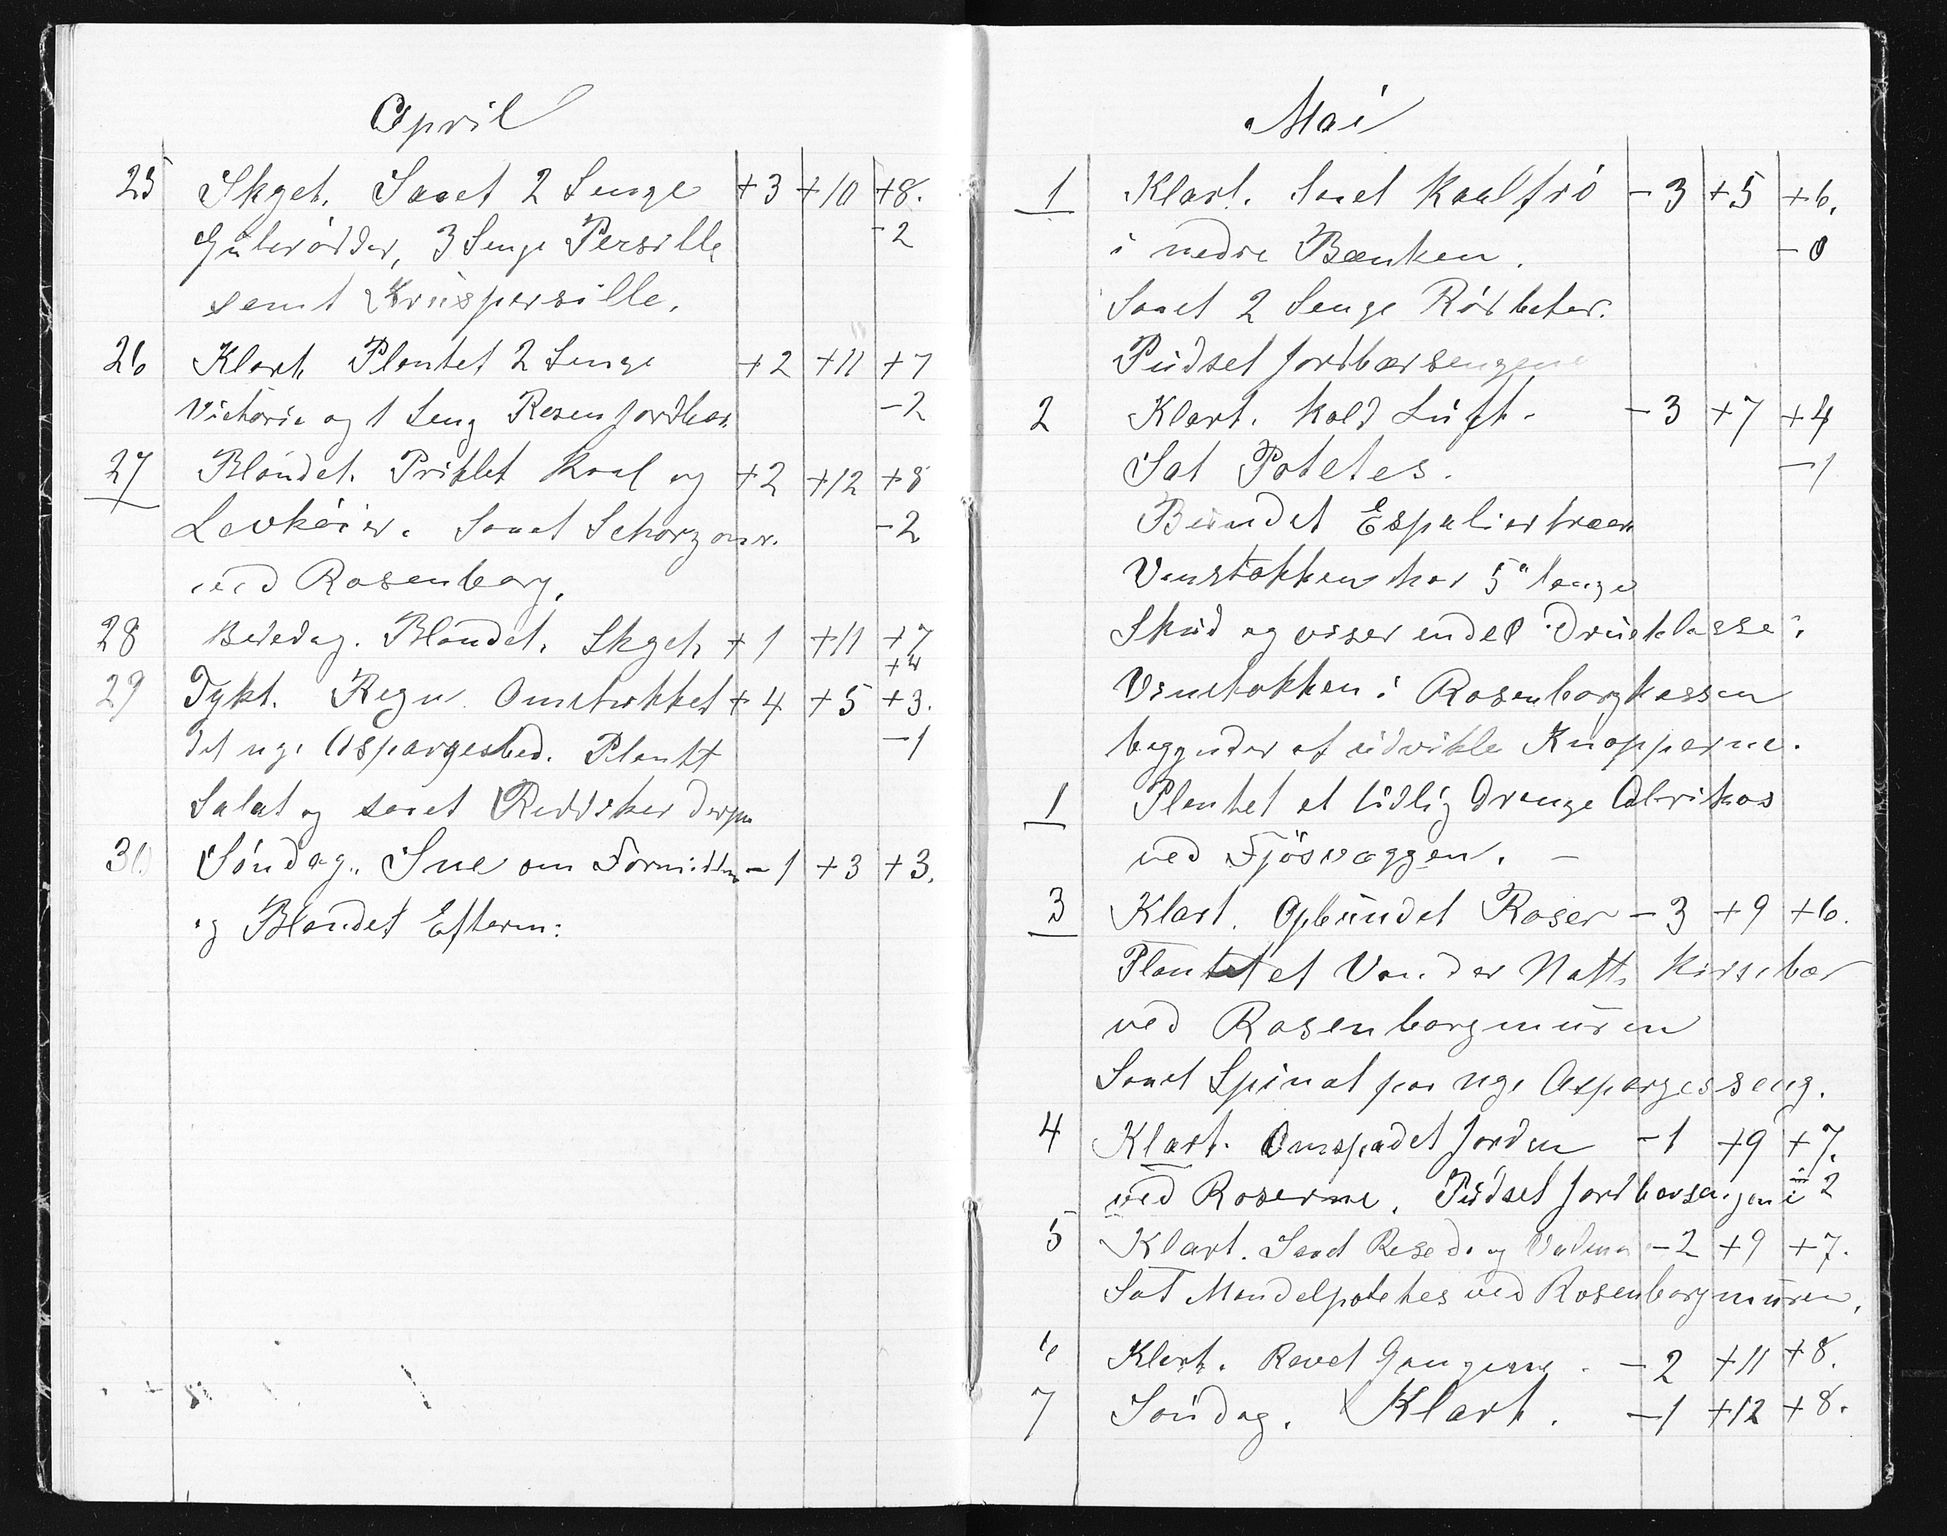 April
25 Skyet. Saaet 2 Senge +3 +10 +8.
Gulerødder, 3 Senge Persille -2
samt Kruspersille.
26 Klart. Plantet 2 Senge +2 +11 +7
Victoria og 1 Seng Rosenjordbær -2
27 Blandet. Priklet Kaal og +2 +12 +8
Levkøier. Saaet Schorzoner. -2
ved Rosenborg.
28 Bededag. Blandet. Skyet. +1 +11 +7
+4
29 Tykt. Regn. Omstukket +4 +5 +3.
det nye Aspargesbed. Plantet -1
Salat og saaet Reddiker derpaa
30 Søndag. Sne om Formiddn -1 +3 +3.
og Blandet Efterm:
Mai
1 Klart. Saaet Kaalfrø -3 +5 +6.
i nedre Bænken. -0
Saaet 2 Senge Rødbeter.
Pudset Jordbærsengene
2 Klart. Kold Luft. -3 +7 +4
Sat Potetes. -1
Bundet Espaliertræer
Vinstokken har 5" lange
Skud og viser endel Drueklasse.
Vinstokken i Rosenborgkassen
begynder at udvikle Knopperne.
1 Plantet et tidlig Orange Abrikos
ved Fjøsvæggen. -
3 Klart. Opbundet Roser -3 +9 +6.
Plantet et Van der Natt. Kirsebær
ved Rosenborgmuren
Saaet Spinat paa nye Aspargesseng.
4 Klart. Omspadet Jorden -1 +9 +7.
ved Roserne. Pudset Jordbærsengene 2
5 Klart. Saaet Reseda og Valmue -2 +9 +7.
Sat Mandelpotetes ved Rosenborgmuren.
6 Klart. Revet Gangerne. -2 +11 +8.
7 Søndag. Klart. -1 +12 +8.